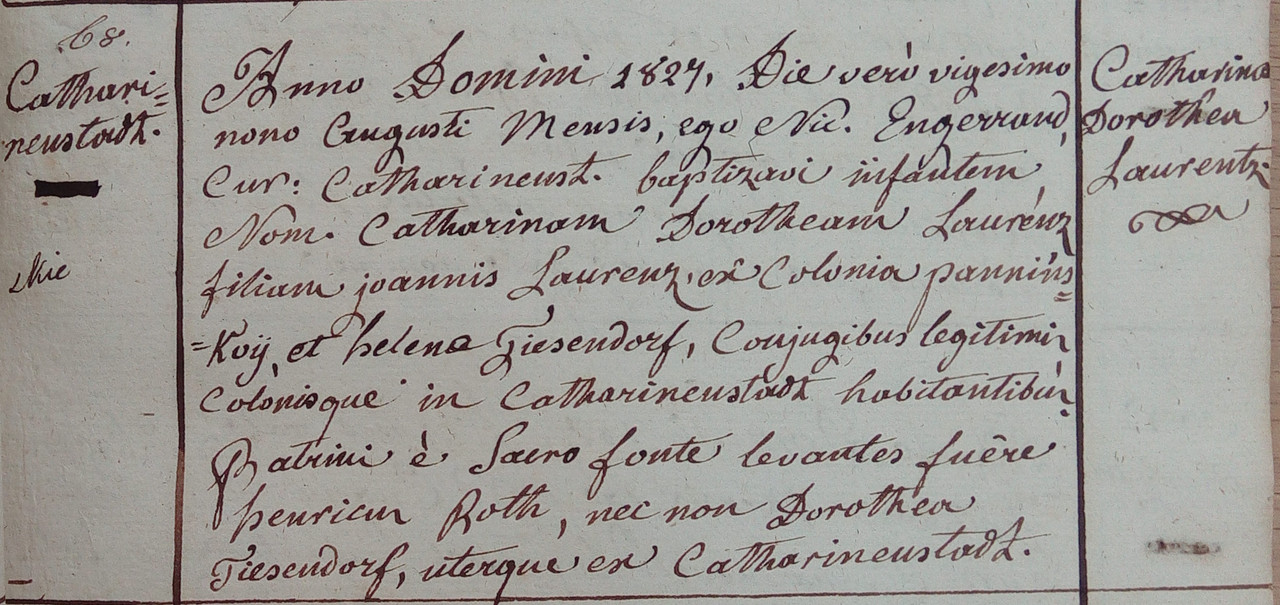 68.
Cathari=
neustadt.
Anno Domini 1827, Die verò vigesimo
nono Augusti Mensis, ego Nic. Engerrand,
Cur: Catharineust. baptizavi infantem
Nom. Catharinam Dorotheam Laurenz
filiam joannis Laurenz, ex Colonia pannins=
=Koÿ, et helena Tiesendorf, Conjugibus legitimis
Colonisque in Catharineustadt habitantibus.
Patrini è Sacro fonte levantes fuêre
henricus Roth, nec non Dorothea
Tiesendorf, uterque ex Catharineustadt.
Catharina
Dorothea
Laurentz.